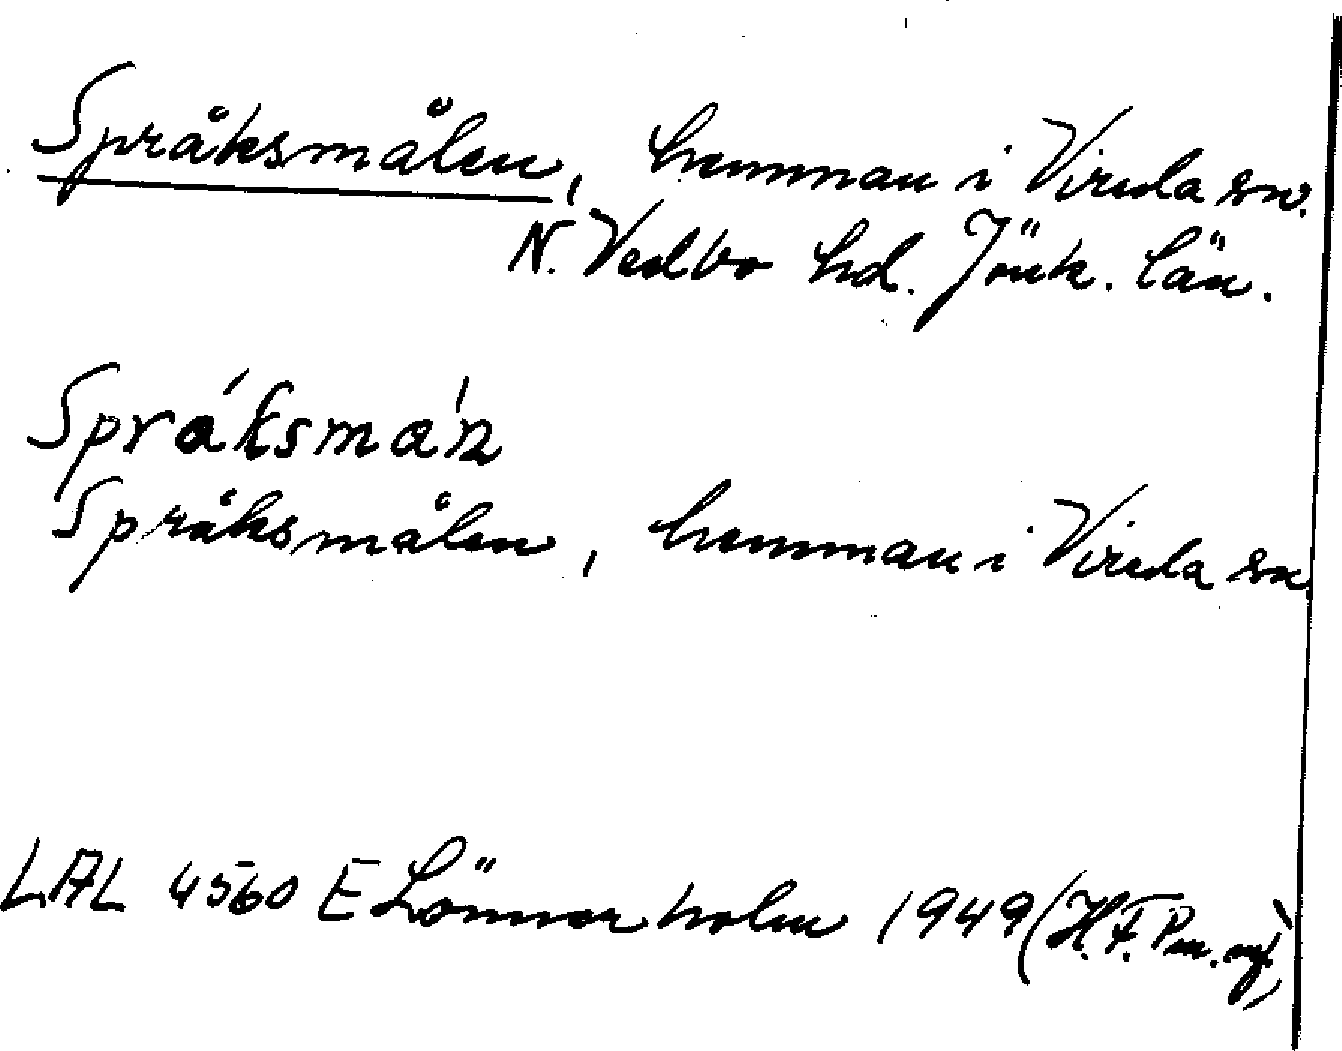 Språksmålen, hemman i Vireda sn.
N. Vedbo hd. Jönk. län.
Spráksmá'n
Språksmålen, hemman i Vireda sn
LAL 4560 E Lönnerholm 1949 (H.F.